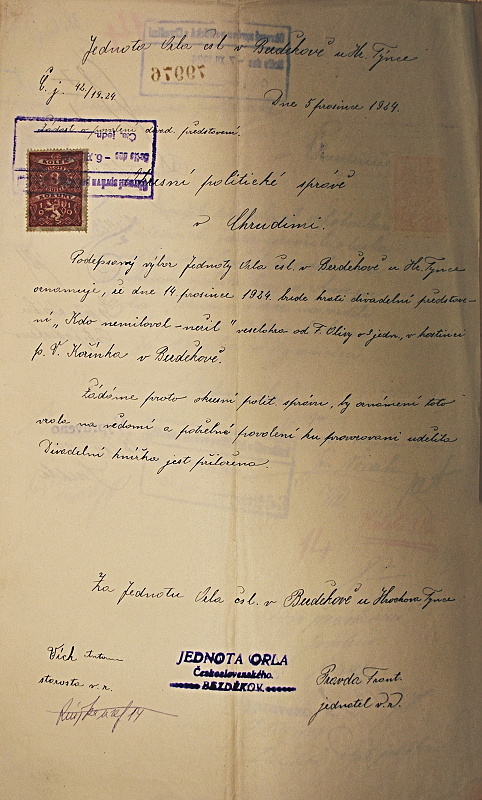 Jednota Orla čsl. v Bezděkově u Hr. Týnce
Č. j. 42/1924
Dne 5 prosince 1924.
70076
Žádost o povolení divad. představení.
Okresní politické správě
v Chrudimi.
KOLEK
Podepsaný výbor Jednoty Orla čsl. v Bezděkově u Hr. Týnce
oznamuje, že dne 14. prosince 1924. bude hráti divadelní představe-
ní „Kdo nemiloval - neřil" veselohra od F. Olivy o 3 jedn., v hostinci
p. V. Kořínka v Bezděkově.
Žádáme proto okresní polit. správu, by oznámení toto
vzala na vědomí a potřebné povolení ku provozování udělila
Divadelní knížka jest přiložena.
Za Jednotu Orla čsl. v Bezděkově u Hrochova Týnce
Vích
starosta v. r.
JEDNOTA ORLA
Československého
BEZDĚKOV.
Pravda Frant.
jednatel v. r.
14